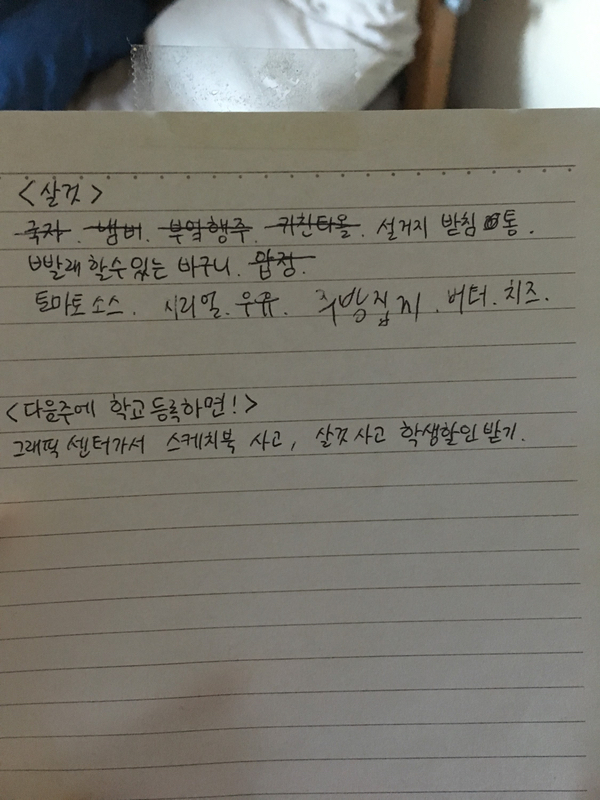 <살것>
국자. 냄비. 부엌행주. 키친타올. 설거지 받침 통.
빨래 할수있는 바구니. 압정.
토마토소스. 시리얼. 우유. 주방집게. 버터. 치즈.
<다음주에 학교등록하면!>
그래픽 센터가서 스케치북 사고, 살것사고 학생할인받기.